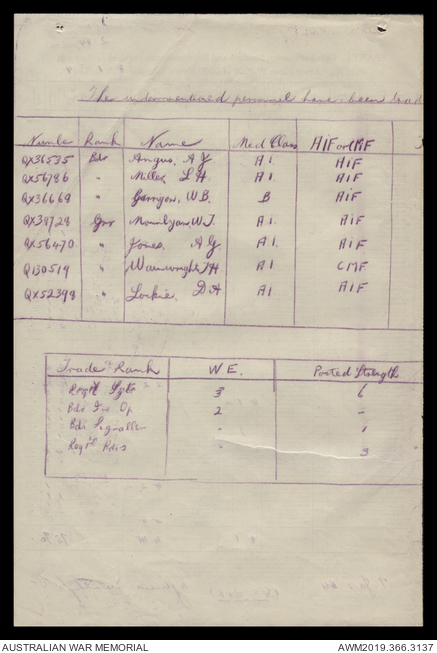 The undermentioned personnel have been
Number Rank Name Med Class AIF or CMF
QX36535 Bdr Angus, A J A1 AIF
QX56786 " Miller, L H A1. AIF
QX36669 " W.B. B AIF
QX38728 Gnr W.J. A1. AIF
QX56470 " Jones, A G A1. AIF
Q130519 " Wainwright, J H A1 CMF
QX52398 " Lockie, D A A1 AIF
Trade & Rank W.E. Posted Strength
3 6
Bdr Op 2 -
Bdr Signaller - 1
Bdrs 3
AUSTRALIAN WAR MEMORIAL
AWM2019.366.3137